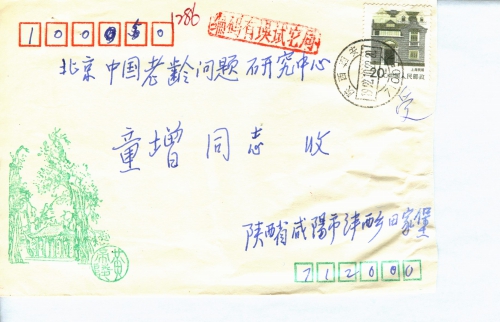 1286
100050
编码有误试宅局
北京中国老龄问题研究中心
20
中国人民邮政
童增同志 收
陕西省咸阳市沣西乡田家堡
712000